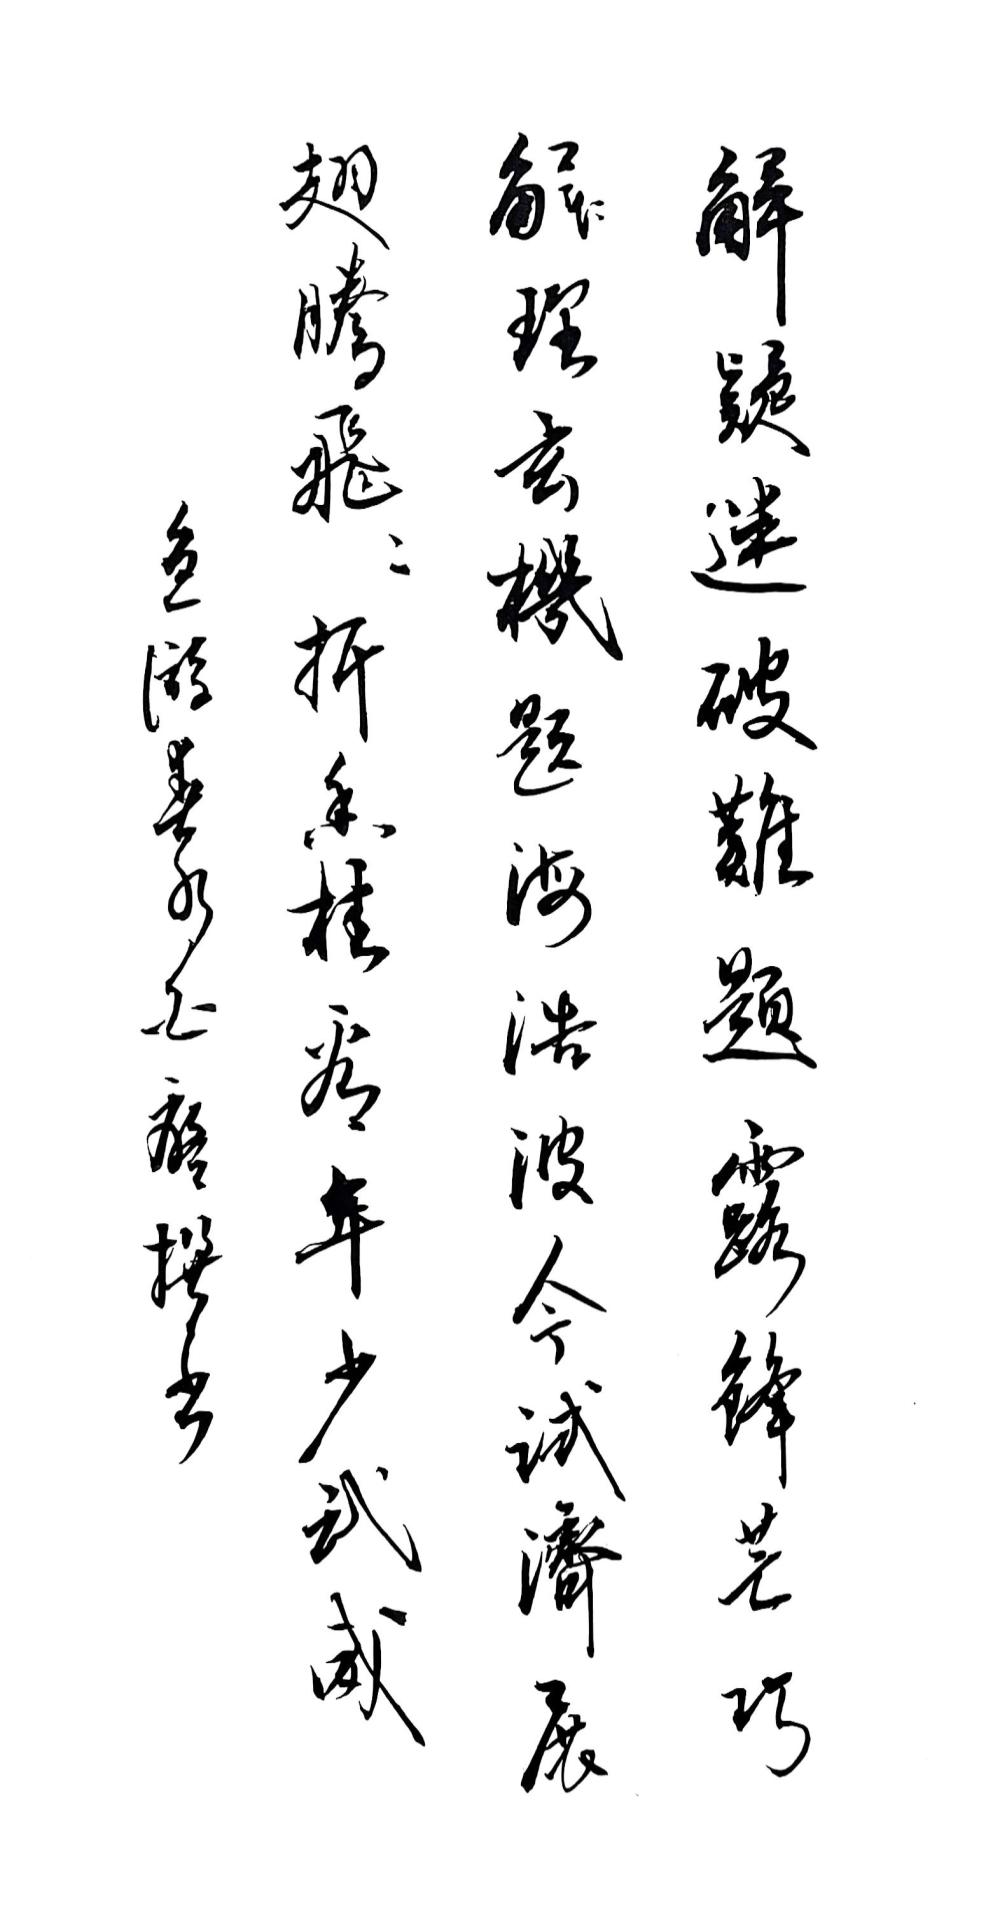 解疑迷破難題露鋒芒巧
解理玄機題海浩波今試濟展
翅騰飛〻折香桂看年少武威
魚游春水撰書